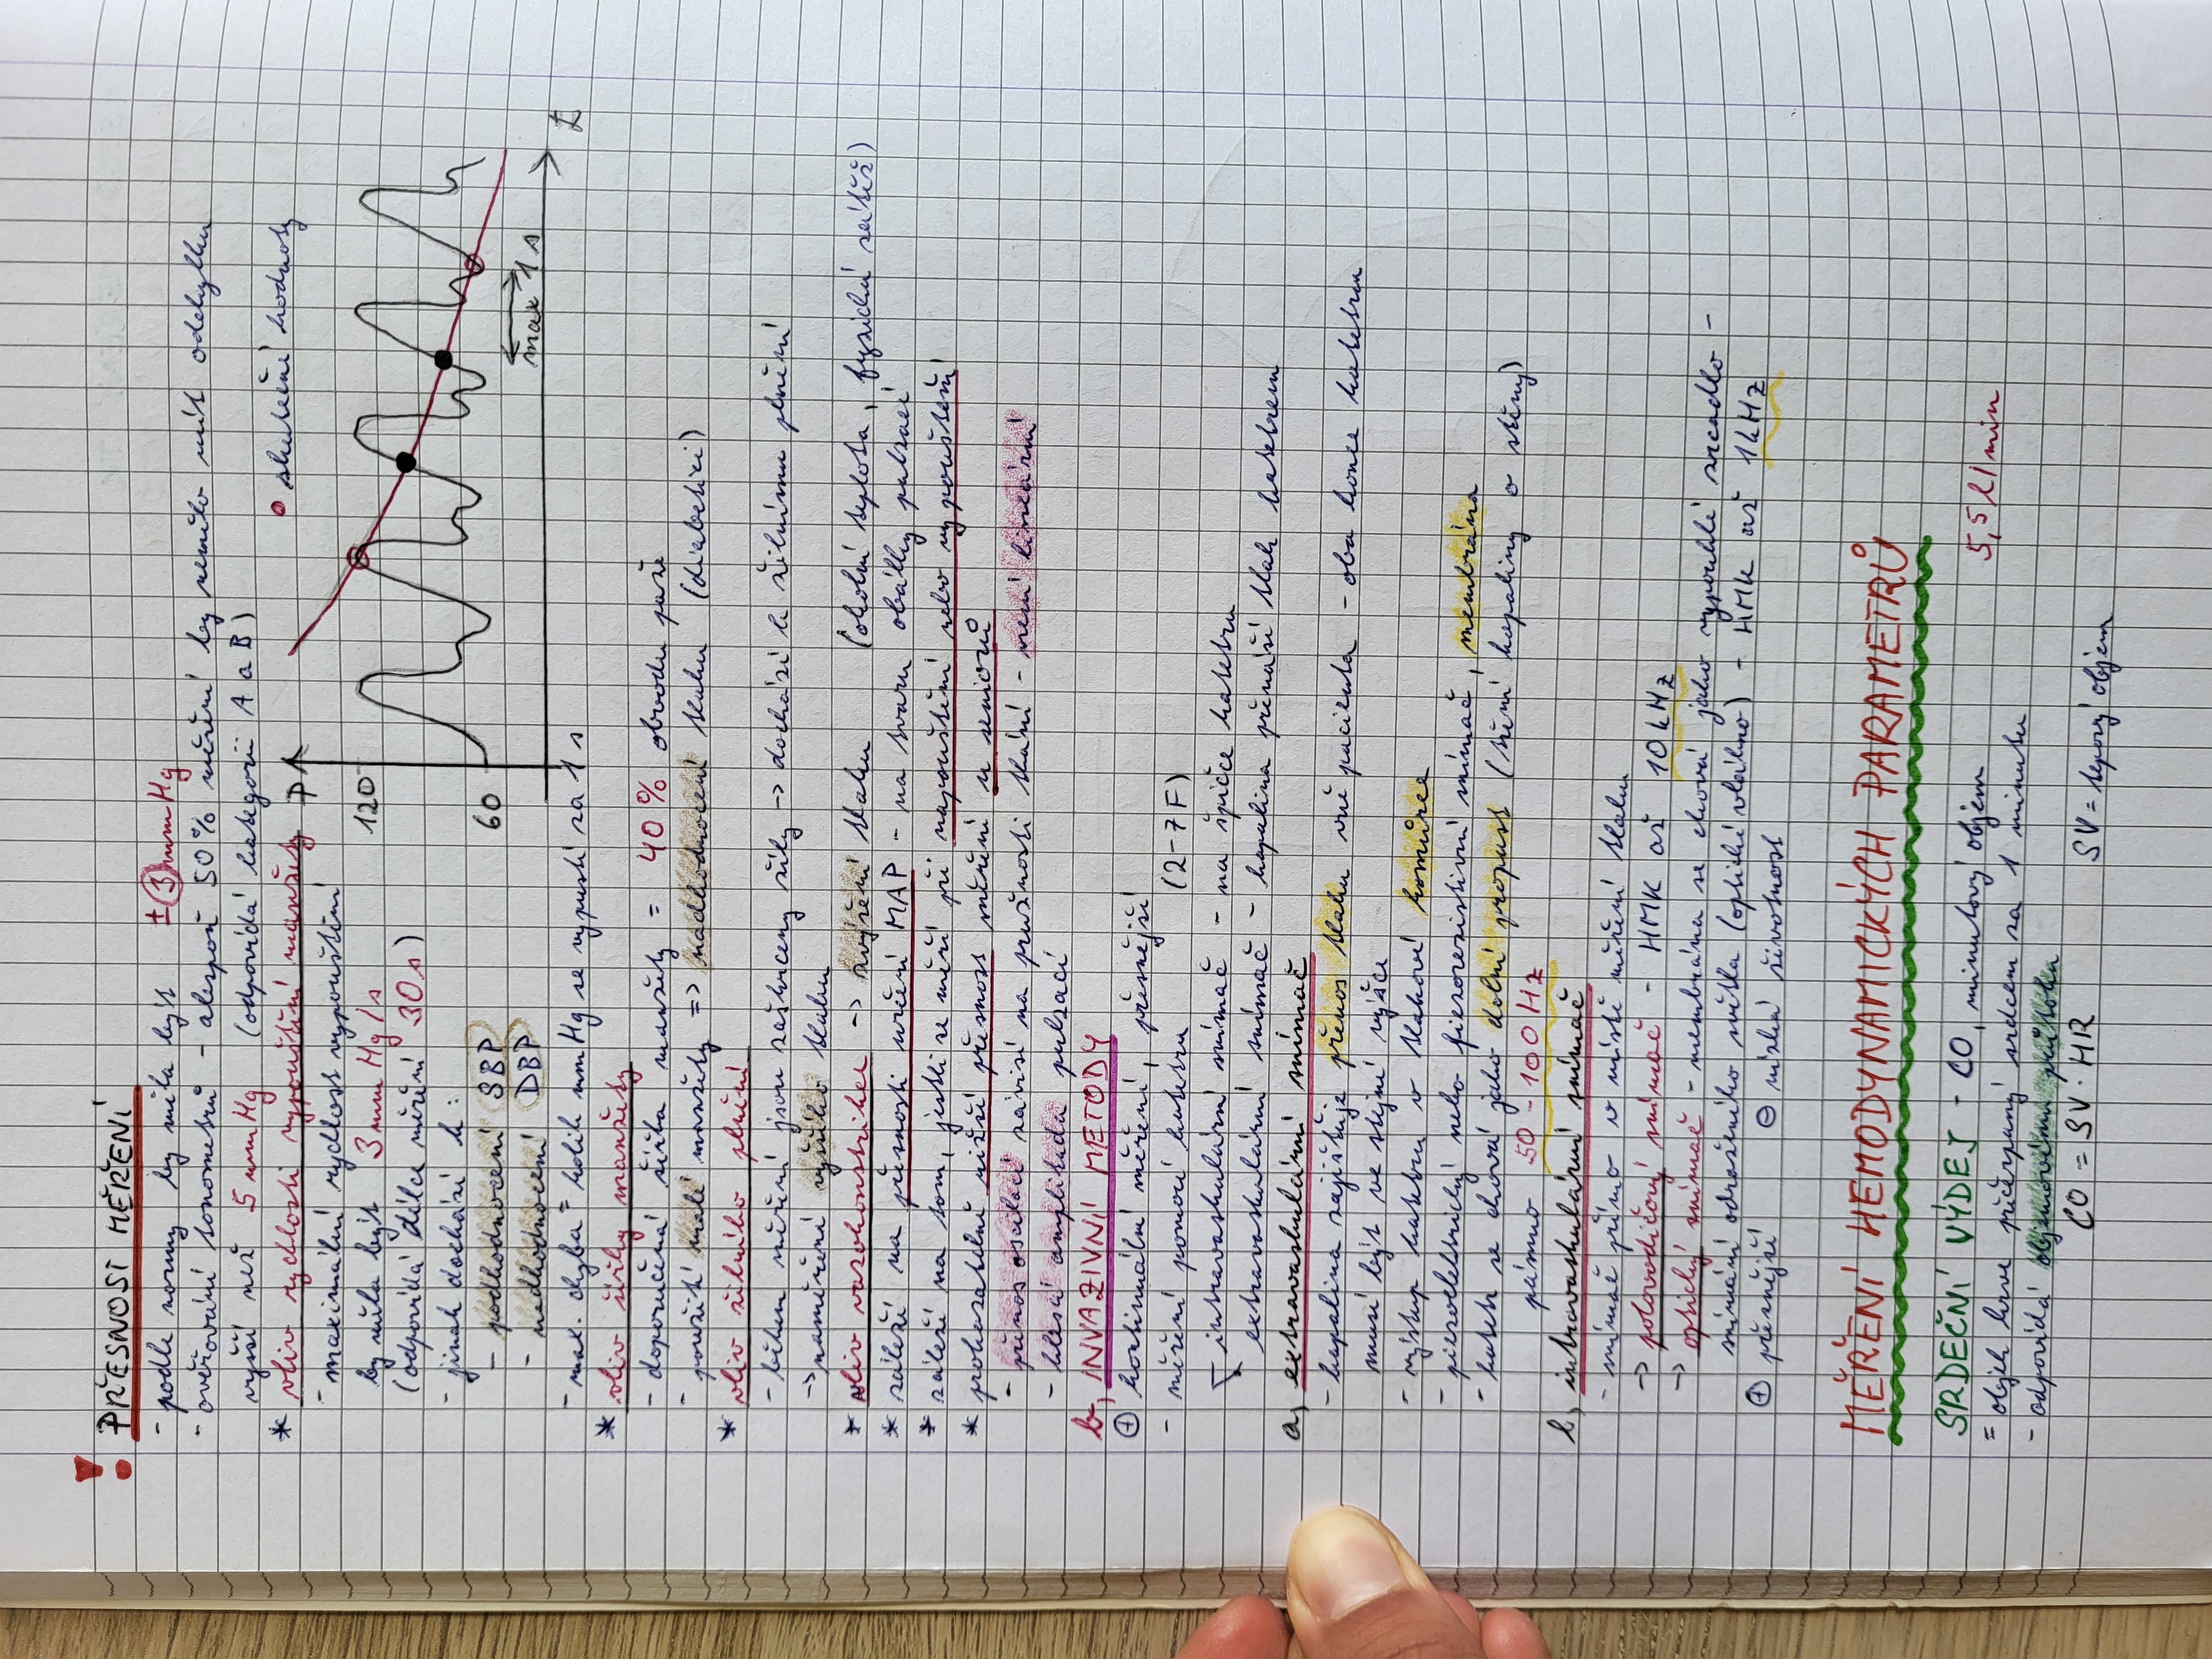 !
PŘESNOST MĚŘENÍ
- podle normy by měla být ± 3 mmHg
- ověřování tonometrů - alespoň 50% měření by nemělo mít odchylku
vyšší než 5 mmHg (odpovídá kategorii A a B)
* vliv rychlosti vypouštění manžety
- maximální rychlost vypouštění
by měla být 3 mm Hg/s
(odpovídá délce měření 30 s)
- jinak dochází k:
- podhodnocení SBP
- nadhodnocení DBP
- max. chyba = kolik mmHg se vypustí za 1 s
P
skutečné hodnoty
120
60
max 1 s
t
* vliv šířky manžety
- doporučená šířka manžety = 40% obvodu paže
- použití malé manžety => nadhodnocení tlaku (diabetici)
* vliv žilního plnění
- během měření jsou zaškrceny žíly -> dochází k žilnímu plnění
-> naměření vyššího tlaku
* vliv vazokonstrikce -> zvýšení tlaku (okolní teplota, fyzická zátěž)
* záleží na přesnosti určení MAP - na tvaru obálky pulzací
* záleží na tom, jestli se měří při napouštění nebo vypouštění
* prokazatelně nižší přesnost měření u seniorů
- přenos oscilací závisí na pružnosti tkání - není lineární
- klesá amplituda pulzací
b, INVAZIVNÍ METODY
⊕ kontinuální měření, přesnější
- měření pomocí katetru (2-7F)
intravaskulární snímač - na špičce katetru
extravaskulární snímač - kapalina přenáší tlak katetrem
a, extravaskulární snímač
- kapalina zajišťuje přenos tlaku vně pacienta - oba konce katetru
musí být ve stejné výšce
- výstup katetru v tlakové komůrce
- piezoelektrický nebo piezorezistivní snímač, membrána
- katetr se chová jako dolní propust (tření kapaliny o stěny)
pásmo 50 - 100 Hz
b, intravaskulární snímač
- snímač přímo v místě měření tlaku
-> polovodičový snímač - HMK až 10 kHz
-> optický snímač - membrána se chová jako vypouklé zrcadlo -
snímání odraženého světla (optické vlákno) - HMK až 1kHz
⊕ přesnější ⊖ nízká životnost
MĚŘENÍ HEMODYNAMICKÝCH PARAMETRŮ
SRDEČNÍ VÝDEJ - CO, minutový objem 5,5 l/min
= objem krve přečerpaný srdcem za 1 minutu
- odpovídá objemovému průtoku
CO = SV · HR SV = tepový objem